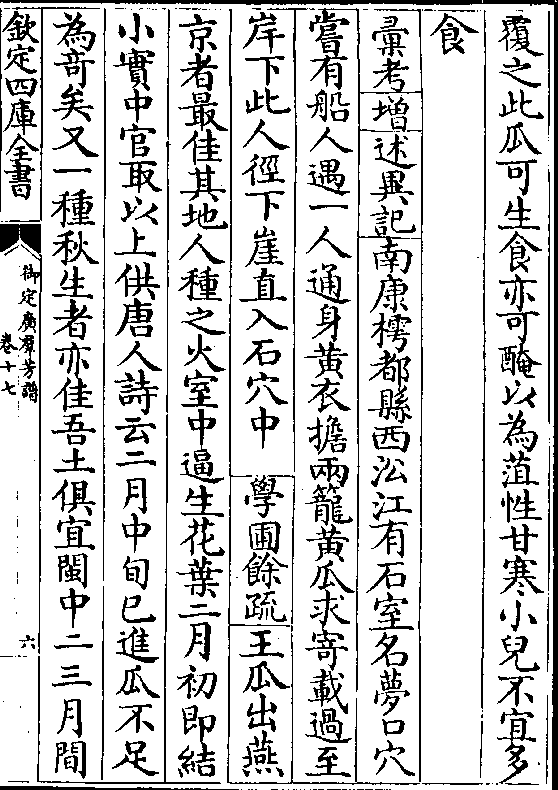 覆之此瓜可生食亦可醃以為菹性甘寒小兒不宜多
食
彚考增述異記南康樗都縣西㳂江有石室名夢口穴
嘗有船人遇一人通身黃衣擔兩籠黃瓜求寄載過至
岸下此人徑下崖直入石穴中學圃餘疏王瓜出燕
京者最佳其地人種之火室中逼生花葉二月初即結
小實中官取以上供唐人詩云二月中旬已進瓜不足
為竒矣又一種秋生者亦佳吾土俱宜閩中二三月間
欽定四庫全書
御定廣羣芳譜
卷十七
六